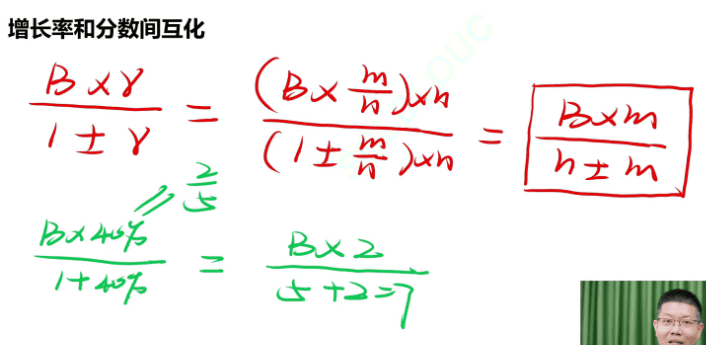 增长率和分数间互化
B×r/(1±r) = (B×m/n)×n/((1±m/n)×n) = B×m/(n±m)
2/5
B×40%/(1+40%) = B×2/(5+2=7)